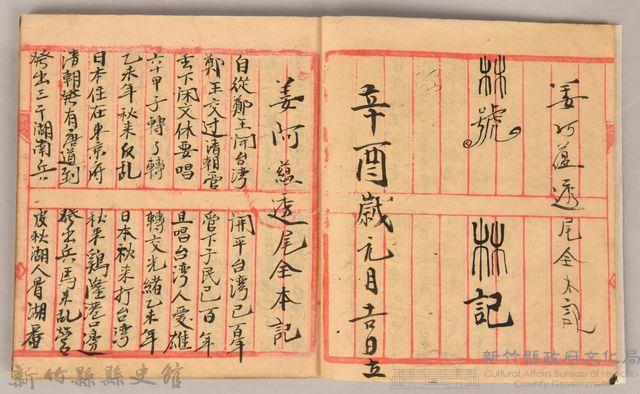 姜阿蕴透尾全本記
林號
林記
辛酉歲元月吉日立
姜阿蕴透尾全本記
自從鄭王開台湾
開平台湾已百年
鄭王交过清朝管
管下子民已百年
丢下闲文休要唱
且唱台湾人爱雄
六十甲子轉了轉
轉交光緒乙未年
乙未年秋来反乱
日本秋来打台湾
日本住在東京府
秋来鷄隆港口邊
清朝發有唐道到
發出兵馬来乱營
發出三千湖南兵
皮秋湖人冒湖
新竹縣縣史館
新竹縣政府文化局
Cultural Affairs Bureau of Hsinchu
County Government